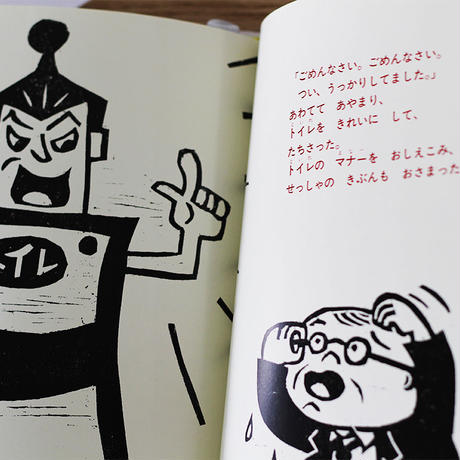 イレ
「ごめんなさい。ごめんなさい。
つい、うっかりしてました。」
あわてて あやまり、
トイレを きれいに して、
たちさった。
トイレの マナーを おしえこみ、
せっしゃの きぶんも おさまった